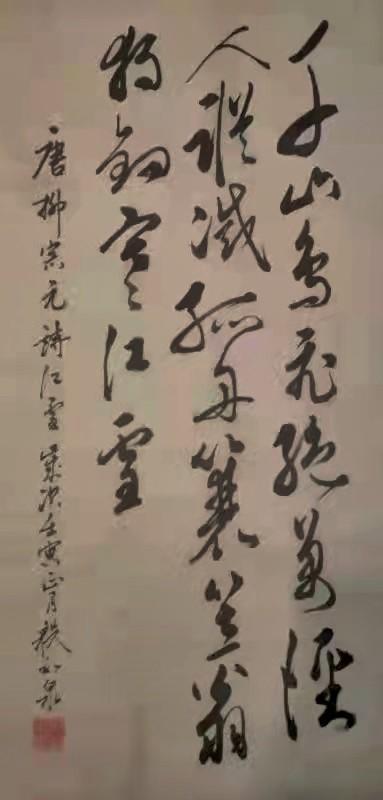 千山鳥飛絕萬徑
人蹤滅孤舟簑笠翁
獨釣寒江雪
唐柳宗元詩江雪歲次壬寅正月泉